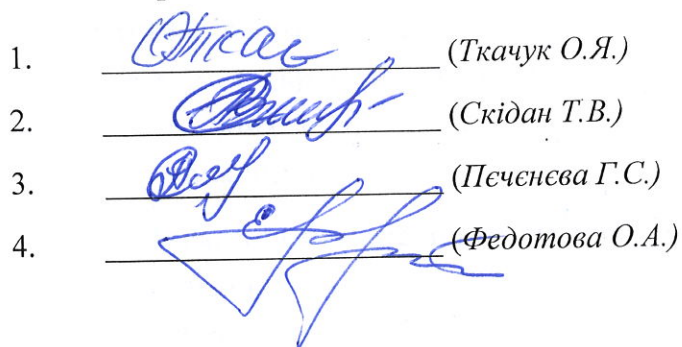 1. (Ткачук О.Я.)
2. (Скідан Т.В.)
3. (Пєчєнєва Г.С.)
4. (Федотова О.А.)